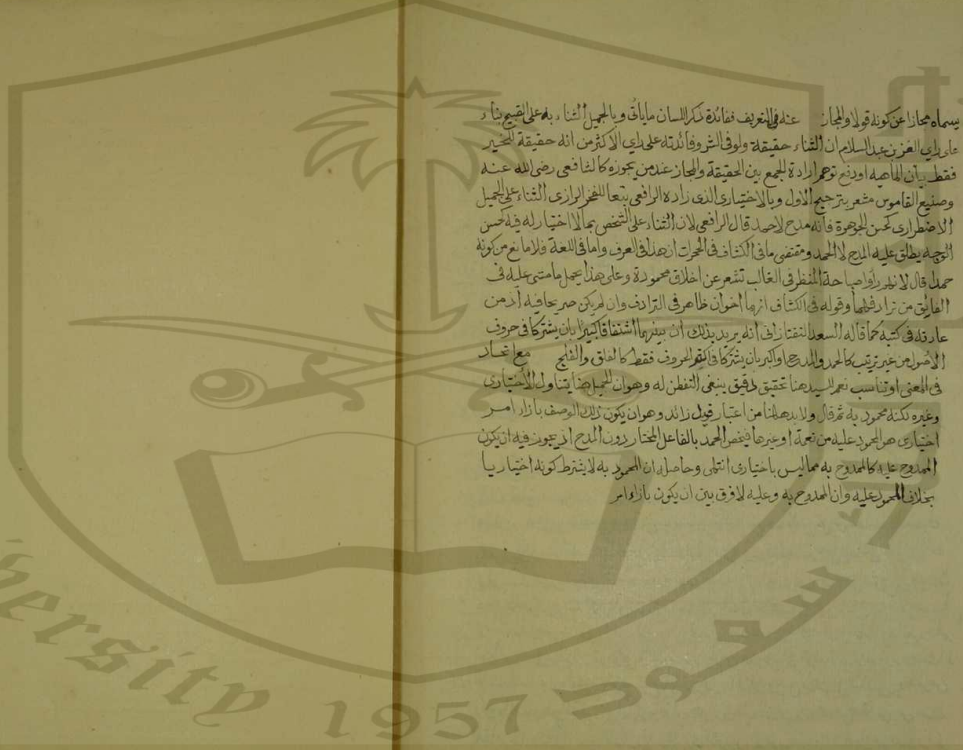 يسماه مجازا عن كونه قولا والمجاز عنه في التعريف ففائدة ذكر اللسان ما يأتي وبالجميل الثناء به على القبيح بناء
على راي العز بن عبد السلام ان الثناء حقيقة ولو في الشر وفائدته على راي الاكثر من انه حقيقة للخير
فقط بيان الماهيه او دفع توهم ارادة الجمع بين الحقيقة والمجاز عند من يجوزه كالشافعي رضي الله عنه
وصنيع القاموس مشعر بترجيح الاول وبالاختياري الذي زاده الرافعي تبعا للفخر الرازي الثناء على الجميل
الاضطراري كحسن الجوهرة فانه مدح لا حمد قال الرافعي لان الثناء على الشخص بما لا اختيار له فيه كحسن
الوجه يطلق عليه المدح لا الحمد ومقتضى ما في الكشاف في الحجرات ان هذا في العرف واما في اللغة فلا مانع من كونه
حمدا قال لان وصباحة المنظر في الغالب تشعر عن اخلاق محمودة وعلى هذا يحمل ما مشى عليه في
الفائق من ترادفهما وقوله في الكشاف انهما اخوان ظاهر في الترادف وان لم يكن صريحا فيه اذ من
عادته في كتبه كما قاله السعد التفتازاني انه يريد بذلك ان بينهما اشتقاقا كبيرا بان يشتركا في حروف
الاصول من غير ترتيب كالحمد والمدح او اكبر بان يشتركا في اكثر الحروف فقط كالفلق والفلج مع اتحاد
في المعنى او تناسب نعم للسيد هنا تحقيق دقيق ينبغي التفطن له وهو ان الجميل هنا يتناول الاختياري
وغيره لكنه محمود به ثم قال ولا بد هنا من اعتبار قيد زائد وهو ان يكون ذلك الوصف بازاء امر
اختياري هو المحمود عليه من نعمة او غيرها فيختص الحمد بالفاعل المختار دون المدح اذ يجوز فيه ان يكون
الممدوح عليه كالممدوح به مما ليس باختياري انتهى وحاصله ان المحمود به لا يشترط كونه اختياريا
بخلاف المحمود عليه وان الممدوح به وعليه لا فرق بين ان يكون بازاء امر
سعود
versity 1957